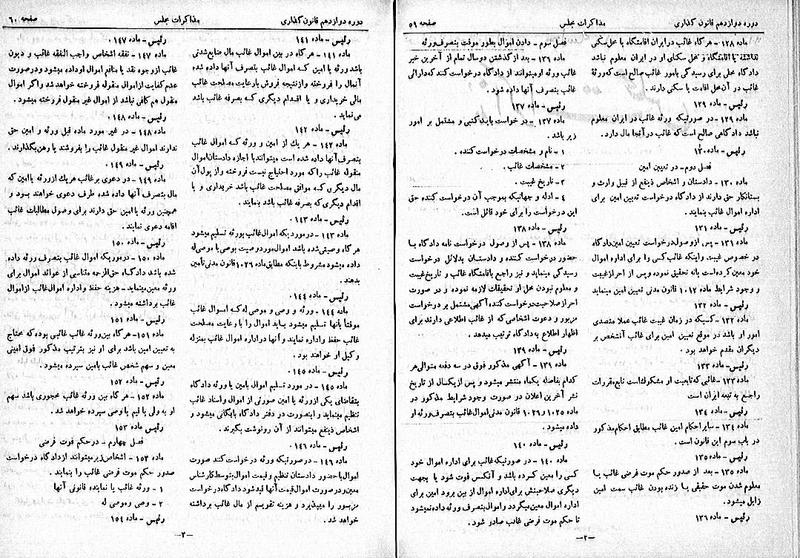 دوره دوازدهم قانون گذاری
مذاکرات مجلس
صفحه ۵۹
ماده ۱۲۸ - هرگاه غائب در ایران اقامتگاه یا محل سکنی
نداشته یا اقامتگاه و محل سکنای او در ایران معلوم نباشد
دادگاه محلی برای رسیدگی بامور غائب صالح است که ورثهٔ
غائب در آن محل اقامت یا سکنی دارند.
رئیس - ماده ۱۲۹
ماده ۱۲۹ - در صورتیکه ورثه غائب در ایران معلوم
نباشد دادگاهی صالح است که غائب در آنجا مال دارد.
رئیس - ماده ۱۳۰
فصل دوم - در تعیین امین
ماده ۱۳۰ - دادستان و اشخاص ذینفع از قبیل وارث و
بستانکار حق دارند از دادگاه درخواست تعیین امین برای
اداره اموال غائب بنمایند.
رئیس - ماده ۱۳۱
ماده ۱۳۱ - پس از وصول درخواست تعیین امین دادگاه
در خصوص غیبت و اینکه غائب کسی را برای اداره اموال
خود معین کرده است یا نه تحقیق نموده و پس از احراز غیبت
و وجود شرایط ماده ۱۰۱۲ قانون مدنی تعیین امین مینماید
رئیس - ماده ۱۳۲
ماده ۱۳۲ - کسیکه در زمان غیبت غائب عملا متصدی
امور او باشد در موقع تعیین امین برای غائب آنشخص بر
دیگران مقدم خواهد بود.
رئیس - ماده ۱۳۳
ماده ۱۳۳ - غائبی که تابعیت او مشکوکست تابع مقررات
راجع به تبعه ایران است
رئیس - ماده ۱۳۴
ماده ۱۳۴ - سایر احکام امین غائب مطابق احکام مذکور
در باب سوم این قانون است.
رئیس - ماده ۱۳۵
ماده ۱۳۵ - بعد از صدور حکم موت فرضی غائب یا
معلوم شدن موت حقیقی یا زنده بودن غائب سمت امین
زایل میشود.
رئیس - ماده ۱۳۶
فصل سوم - دادن اموال بطور موقت بتصرف ورثه
ماده ۱۳۶ - بعد از گذشتن دو سال تمام از آخرین خبر
غائب ورثه او میتوانند از دادگاه درخواست کنند که دارائی
غائب بتصرف آنها داده شود.
رئیس - ماده ۱۳۷
ماده ۱۳۷ - درخواست باید کتبی و مشتمل بر امور
زیر باشد.
۱ - نام و مشخصات درخواست کننده.
۲ - مشخصات غائب.
۳ - تاریخ غیبت.
۴ - ادله و جهاتیکه بموجب آن درخواست کننده حق
این درخواست را برای خود قائل است.
رئیس - ماده ۱۳۸
ماده ۱۳۸ - پس از وصول درخواست نامه دادگاه با
حضور درخواست کننده و دادستان بدلائل درخواست
رسیدگی مینماید و نیز راجع باقامتگاه غائب و تاریخ غیبت
و معلوم نبودن محل او تحقیقات لازمه نموده و در صورت
احراز صلاحیت درخواست کننده آگهی مشتمل بر درخواست
مزبور و دعوت اشخاصی که از غائب اطلاعی دارند برای
اظهار اطلاع به دادگاه ترتیب میدهد.
رئیس - ماده ۱۳۹
ماده ۱۳۹ - آگهی مذکور فوق در سه دفعه متوالی هر
کدام بفاصله یکماه منتشر میشود و پس از یکسال از تاریخ
نشر آخرین اعلان در صورت وجود شرایط مذکور در
ماده ۱۰۲۵ و ۱۰۲۶ قانون مدنی اموال غائب بتصرف ورثه او
داده میشود.
رئیس - ماده ۱۴۰
ماده ۱۴۰ - در صورتیکه غائب برای اداره اموال خود
کسی را معین کرده باشد و آنکس فوت شود یا بجهت
دیگری صلاحیتش برای اداره اموال از بین برود امین برای
اداره اموال معین میگردد و اموال بتصرف ورثه داده نمیشود
تا حکم موت فرضی غائب صادر شود.
ـ۲ـ
دوره دوازدهم قانون گذاری
مذاکرات مجلس
صفحه ۶۰
رئیس - ماده ۱۴۱
ماده ۱۴۱ - هرگاه در بین اموال غائب مال ضایع شدنی
باشد ورثه یا امین که اموال غائب بتصرف آنها داده شده
آنمال را فروخته و از نتیجه فروش با رعایت مصلحت غائب
مالی خریداری و یا اقدام دیگری که بصرفه غائب باشد
می نماید.
رئیس - ماده ۱۴۲
ماده ۱۴۲ - هر یک از امین و ورثه که اموال غائب
بتصرف آنها داده شده است میتوانند با اجازه دادستان اموال
منقوله غائب را که مورد احتیاج نیست فروخته و از پول آن
مال دیگری که موافق مصلحت غائب باشد خریداری و یا
اقدام دیگری که بصرفه غائب باشد بنمایند.
رئیس - ماده ۱۴۳
ماده ۱۴۳ - در موردیکه اموال غائب بورثه تسلیم میشود
هرگاه وصیتی شده باشد اموال مورد وصیت بوصی یا موصی له
داده میشود مشروط باینکه مطابق ماده ۱۰۲۶ قانون مدنی تأمین
بدهند.
رئیس - ماده ۱۴۴
ماده ۱۴۴ - ورثه و وصی و موصی له که اموال غائب
موقتاً بآنها تسلیم میشود باید اموال را با رعایت مصلحت
غائب حفظ و اداره نمایند و آنها در اداره اموال غائب بمنزله
وکیل او خواهند بود.
رئیس - ماده ۱۴۵
ماده ۱۴۵ - در مورد تسلیم اموال بامین یا ورثه دادگاه
بتقاضای یکی از ورثه یا امین صورتی از اموال و اسناد غائب
تنظیم مینماید و اینصورت در دفتر دادگاه بایگانی میشود و
اشخاص ذینفع میتوانند از آن رونوشت بگیرند.
رئیس - ماده ۱۴۶
ماده ۱۴۶ - در صورتیکه ورثه درخواست کنند صورت
اموال با حضور دادستان تنظیم و قیمت اموال بتوسط کارشناس
معین و در صورت اموال قیمت آنها قید شود دادگاه درخواست
مزبور را میپذیرد و هزینه تقویم از مال غائب برداشته
خواهد شد.
رئیس - ماده ۱۴۷
ماده ۱۴۷ - نفقه اشخاص واجب النفقه غائب و دیون
غائب از وجوه نقد یا منافع اموال او داده میشود و در صورت
عدم کفایت از اموال منقوله فروخته خواهد شد و اگر اموال
منقول هم کافی نباشد از اموال غیر منقول فروخته میشود.
رئیس - ماده ۱۴۸
ماده ۱۴۸ - در غیر مورد ماده قبل ورثه و امین حق
ندارند اموال غیر منقول غائب را بفروشند یا رهن بگذارند.
رئیس - ماده ۱۴۹
ماده ۱۴۹ - در دعوی بر غائب هر یک از ورثه یا امین که
مال بتصرف آنها داده شده طرف دعوی خواهند بود و
همچنین ورثه یا امین حق دارند برای وصول مطالبات غائب
اقامه دعوی نمایند.
رئیس - ماده ۱۵۰
ماده ۱۵۰ - در موردیکه اموال غائب بتصرف ورثه داده
شده باشد دادگاه حق الزحمه متناسبی از عوائد اموال برای
ورثه معین مینماید - هزینه حفظ و اداره اموال غائب از اموال
غائب برداشته میشود.
رئیس - ماده ۱۵۱
ماده ۱۵۱ - هرگاه بین ورثه غائب غائبی بوده که محتاج
به تعیین امین باشد برای او نیز بترتیب مذکور فوق امینی
معین و سهم شخص غائب بامین سپرده میشود.
رئیس - ماده ۱۵۲
ماده ۱۵۲ - هرگاه بین ورثه غائب محجوری باشد سهم
او به ولی یا قیم یا وصی سپرده خواهد شد.
رئیس - ماده ۱۵۳
فصل چهارم - در حکم فوت فرضی
ماده ۱۵۳ - اشخاص زیر میتوانند از دادگاه درخواست
صدور حکم موت فرضی غائب را بنمایند.
۱ - ورثه غائب یا نماینده قانونی آنها
۲ - وصی و موصی له
رئیس - ماده ۱۵۴
ـ۳ـ